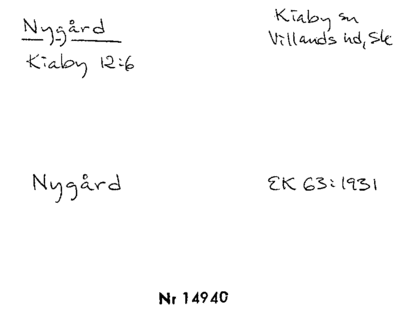 Nygård
Kiaby 12:6
Kiaby sn
Villands hd, Sk
Nygård
EK 63:1931
Nr 14940